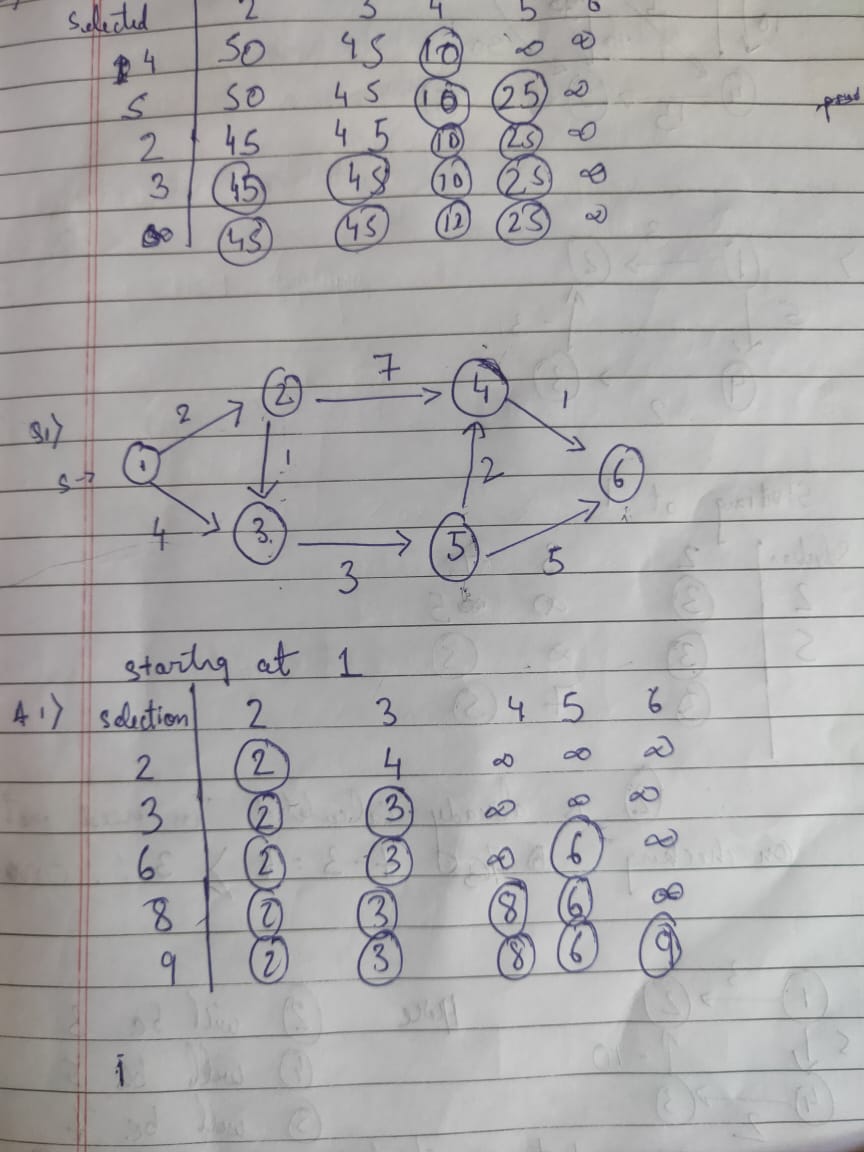 Selected 2 3 4 5 6
4 50 45 10 ∞ ∞
5 50 45 10 25 ∞
2 45 45 10 25 ∞
3 45 45 10 25 ∞
45 45 12 25 ∞
7
2 4
2 1
Q1)
1 1 2 6
S→
4 3 5
3 5
starting at 1
A1) selection 2 3 4 5 6
2 2 4 ∞ ∞ ∞
3 2 3 ∞ ∞ ∞
6 2 3 ∞ 6 ∞
8 2 3 8 6 ∞
9 2 3 8 6 9